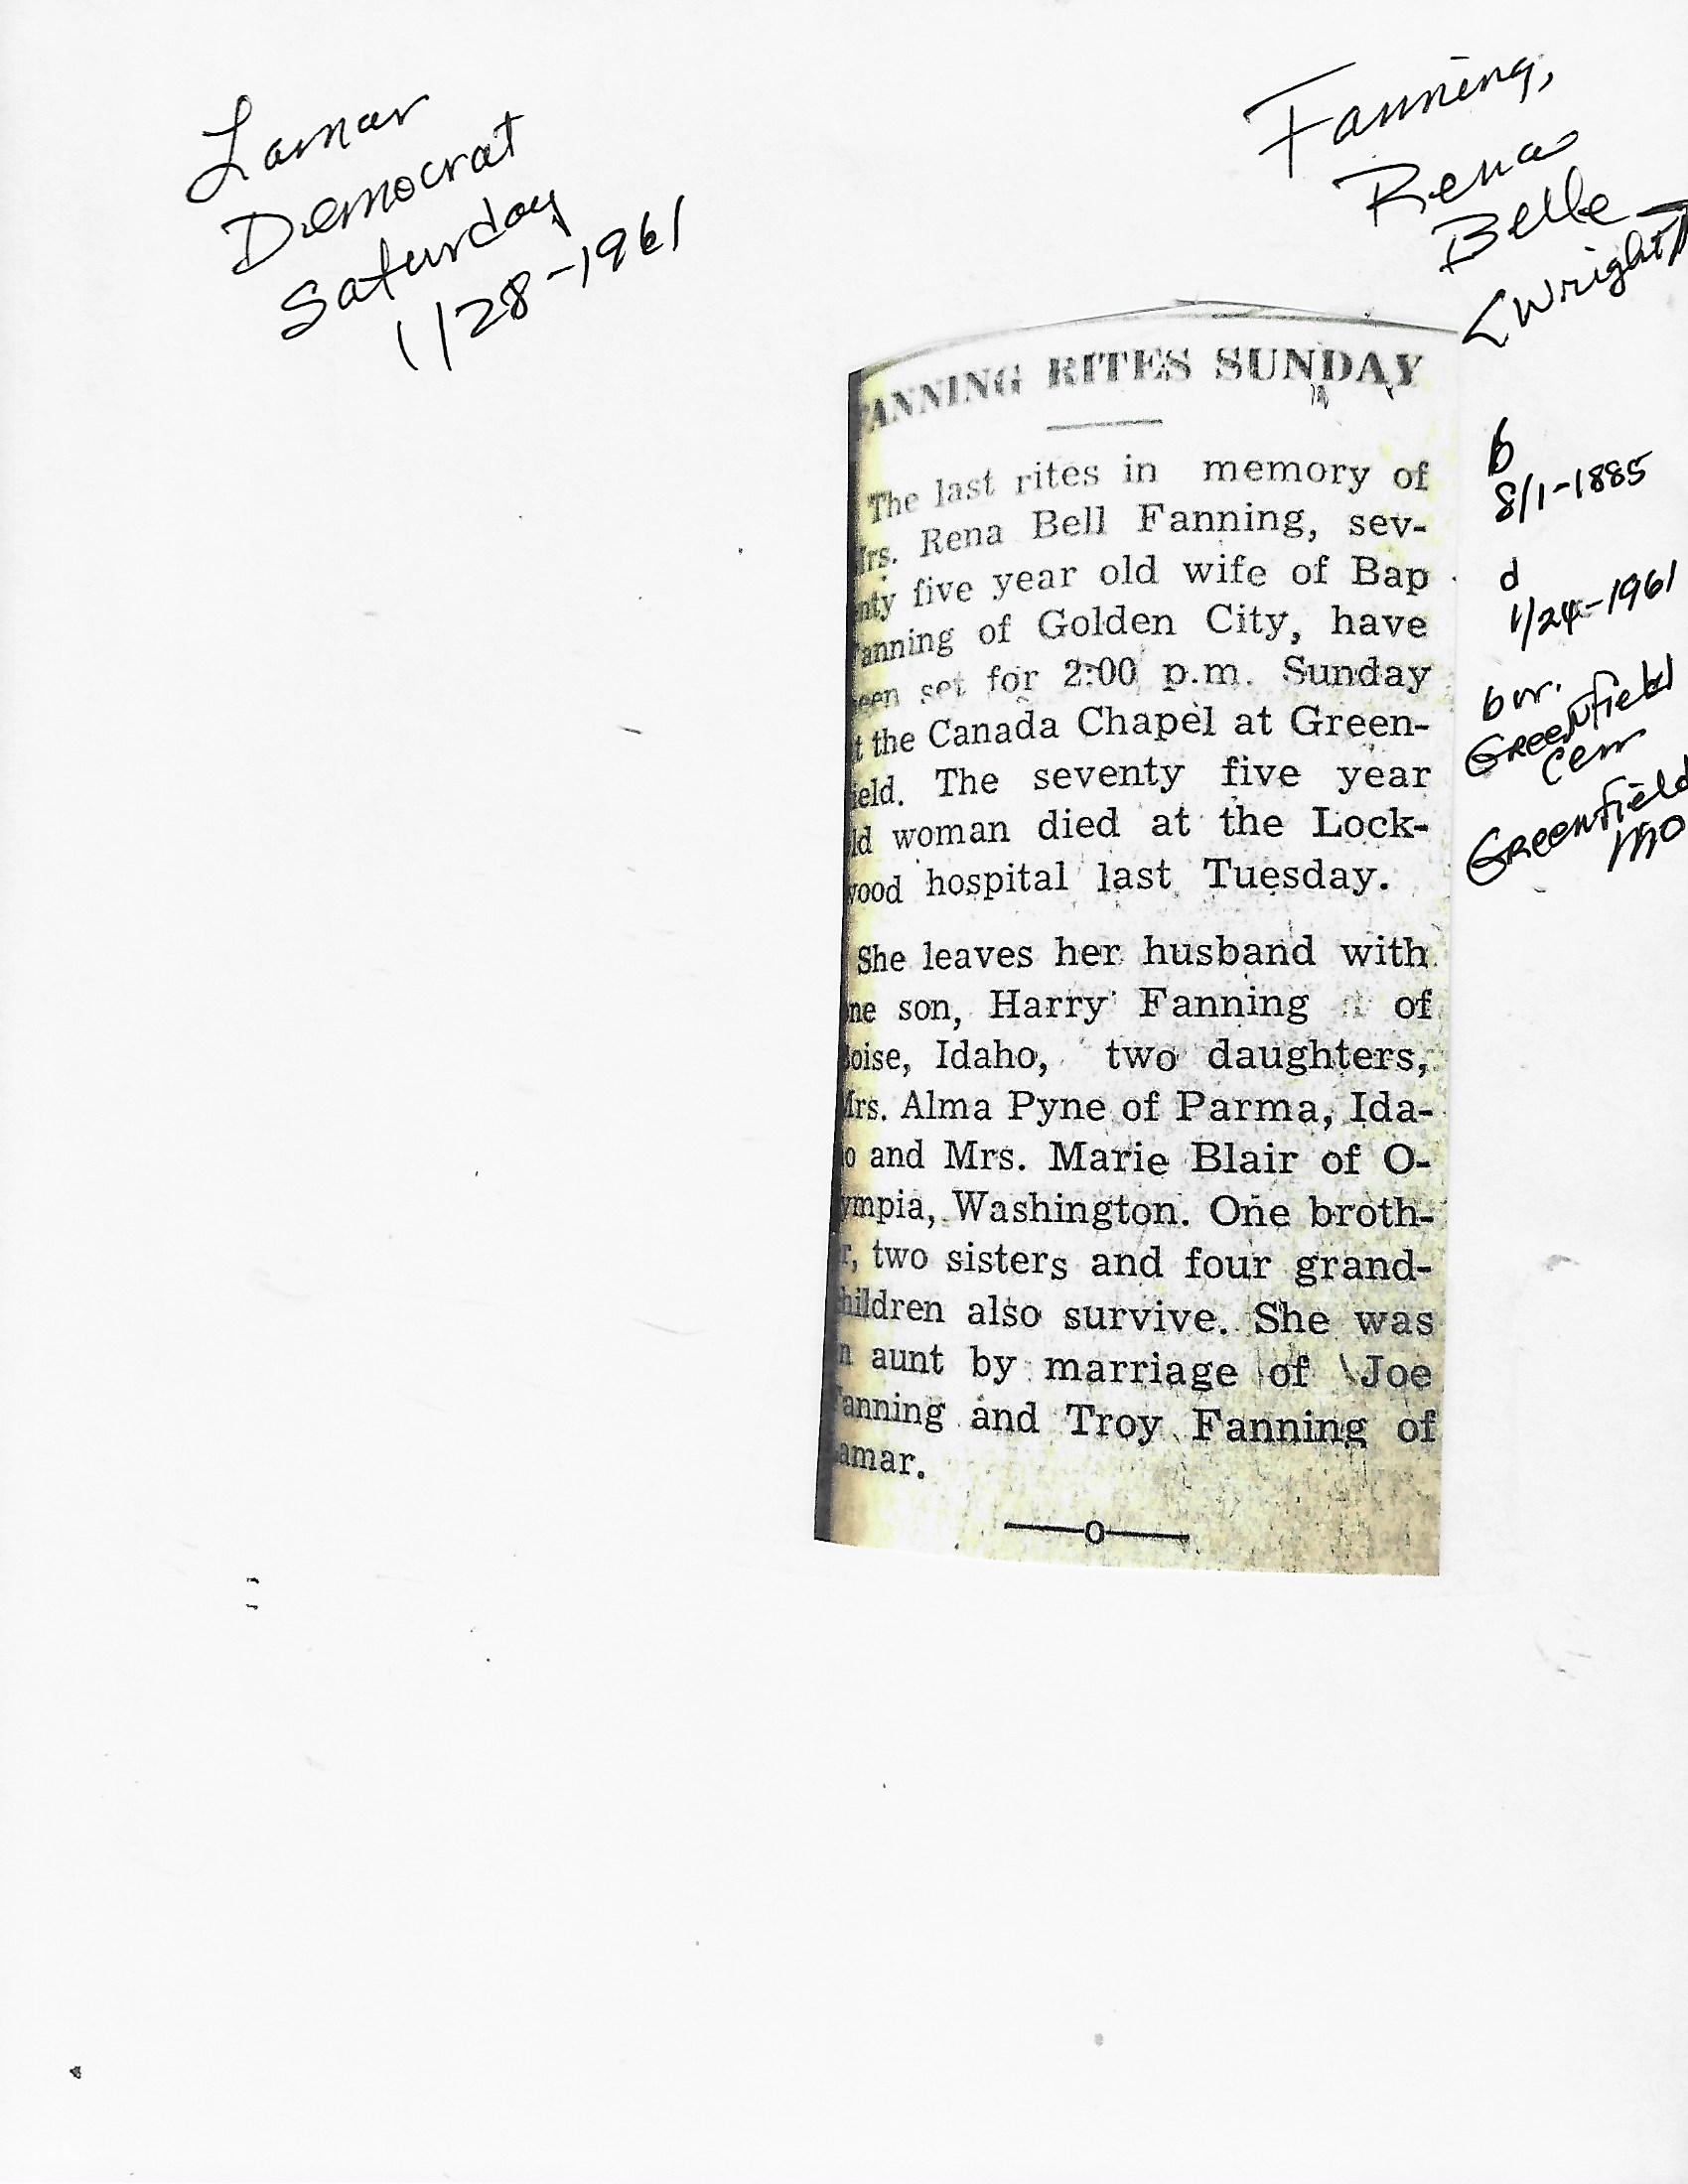 Lamar
Democrat
Saturday
1/28-1961
Fanning,
Rena
Belle
<Wright>
ANNING RITES SUNDAY
The last rites in memory of
rs. Rena Bell Fanning, sev-
nty five year old wife of Bap
anning of Golden City, have
een set for 2:00 p.m. Sunday
t the Canada Chapel at Green-
ield. The seventy five year
ld woman died at the Lock-
ood hospital last Tuesday.
She leaves her husband with
ne son, Harry Fanning of
oise, Idaho, two daughters,
rs. Alma Pyne of Parma, Ida-
o and Mrs. Marie Blair of O-
ympia, Washington. One broth-
r, two sisters and four grand-
hildren also survive. She was
n aunt by marriage of Joe
anning and Troy Fanning of
amar.
b
8/1-1885
d
1/24-1961
bur.
Greenfield
Cem
Greenfield
MO